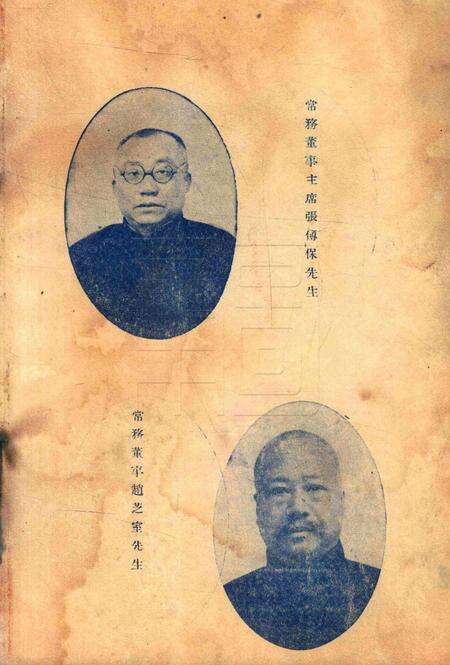 常務董事主席張傅保先生
常務董事趙芝室先生